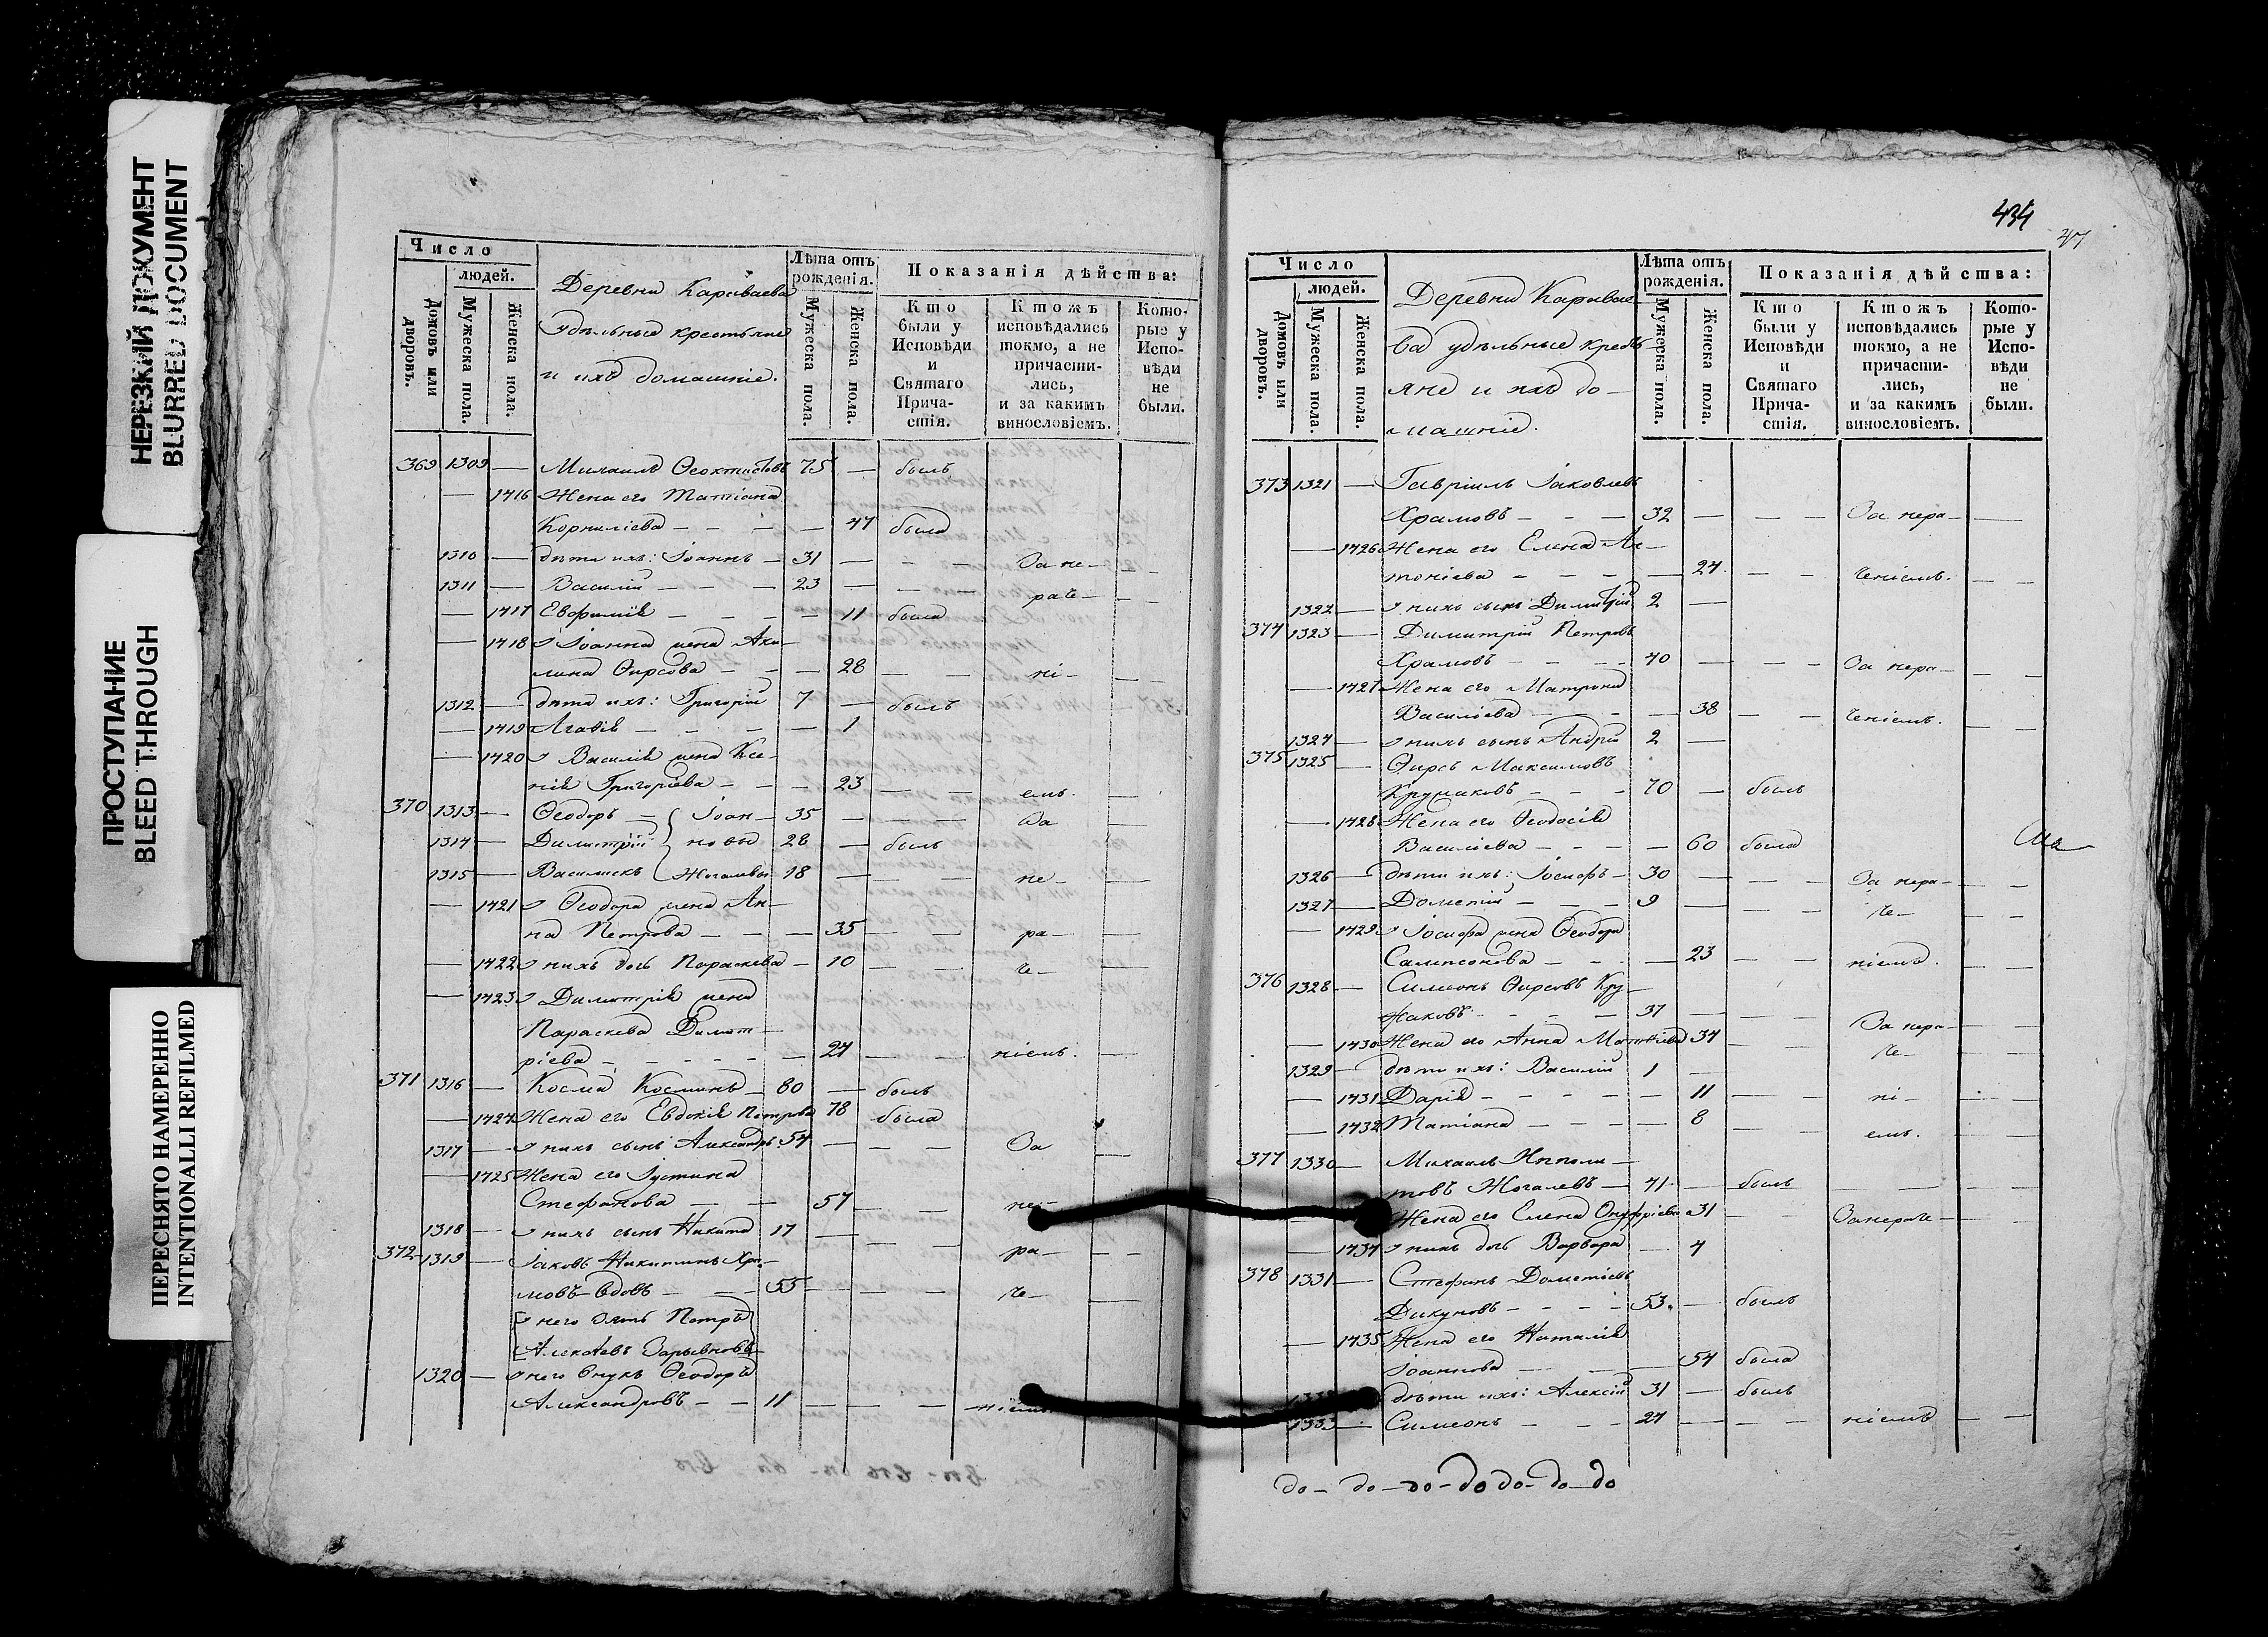 НЕРЕЗКИЙ ДОКУМЕНТ
BLURRED DOCUMENT
ПРОСТУПАНИЕ
BLEED THROUGH
ПЕРЕСНЯТО НАМЕРЕННО
INTENTIONALLI REFILMED
Число
людей.
Домовъ или дворовъ.
Мужеска пола.
Женска пола.
Деревни Караваева
удѣльные крестьяне
и ихъ домашніе.
Лѣта отъ рожденія.
Мужеска пола.
Женска пола.
Показанія дѣйства:
Кто были у Исповѣди и Святаго Причастія.
Ктожъ исповѣдались токмо, а не причастились, и за какимъ винословіемъ.
Которые у Исповѣди не были.
369 1309 — Михаилъ Ѳеоктистовъ 75 — былъ
— 1416 Жена его Татіана
Корниліева — — — — 47 была
1310 — дѣти ихъ: Іоаннъ — 31 — — — За не— — —
1311 — Василій — — — 23 — — — раче— — —
— 1417 Евфимія — — — — 11 была
— 1418 У Іоанна жена Аки—
лина Ѳирсова — — — 28 — — ні— — —
1312 — дѣти ихъ: Григорій 7 — былъ
— 1419 Агафія — — — — 1
— 1420 У Василія жена Ксе—
нія Григоріева — — — 23 — — емъ. —
370 1313 — Ѳеодоръ — Іоан— 35 — — — За —
1314 — Димитрій новы 28 — былъ
1315 — Василискъ Жегалевы 18 — — — не— —
— 1421 У Ѳеодора жена Ан—
на Петрова — — — 35 — — ра— —
— 1422 У нихъ дочь Параскева — 10 — — че— —
— 1423 У Димитрія жена
Параскева Димит—
ріева — — — — — 24 — — ніемъ. —
371 1316 — Косма Косминъ — 80 — былъ
— 1424 Жена его Евдокія Петрова 78 была
1317 — У нихъ сынъ Александръ 54 — — — За —
— 1425 Жена его Іустина
Стефанова — — 57 — — не—
1318 — У нихъ сынъ Никита 17 — — —
372 1319 — Іаковъ Никитинъ Хра—
мовъ вдовъ — — — 55 — — — ра— — —
че— —
У него зять Петръ
Алексѣевъ
1320 — У него внукъ Ѳеодоръ
Александровъ — — 11 — — — —ніемъ
434
47
Число
людей.
Домовъ или дворовъ.
Мужеска пола.
Женска пола.
Деревни Каравае—
ва удѣльные кресть—
яне и ихъ до—
машніе.
Лѣта отъ рожденія.
Мужеска пола.
Женска пола.
Показанія дѣйства:
Кто были у Исповѣди и Святаго Причастія.
Ктожъ исповѣдались токмо, а не причастились, и за какимъ винословіемъ.
Которые у Исповѣди не были.
373 1321 — Гавріилъ Іаковлевъ
Храмовъ — — — 32 — — — За нера— —
— 1426 Жена его Елена Ан—
тоніева — — — — 24. — — ченіемъ. — —
1322 — У нихъ сынъ Димитрій 2 —
374 1323 — Димитрій Петровъ
Храмовъ — — — — 40 — — — За нера— — —
— 1427 Жена его Матрона
Василіева — — — — 38 — — ченіемъ. — —
1324 — У нихъ сынъ Андрей 2 —
375 1325 — Ѳирсъ Максимовъ
Кружаковъ — — — 70 — былъ
— 1428 Жена его Ѳеодосія
Василіева — — — — 60 была
1326 — дѣти ихъ: Іосифъ — 30 — — — За нера— — —
1327 — Дометій — — — 9 — — — че— — —
— 1429 У Іосифа жена Ѳеодора
Сампсонова — — — 23 — — ніемъ. — —
376 1328 — Симеонъ Ѳирсовъ Кру—
жаковъ — — — — 37 — — — За нера— — —
— 1430 Жена его Анна Матѳіева 34 — — че— — —
1329 — дѣти ихъ: Василій 1 —
— 1431 Дарія — — — — — 11 — — ні— — —
— 1432 Татіана — — — — 8 — — емъ. — —
377 1330 — Михаилъ Иппили—
товъ Жегалевъ — 41 — былъ — — —
Жена его Елена Онуфріева 31 — — Занераче— — —
— 1434 У нихъ дочь Варвара — 4
378 1331 — Стефанъ Дометіевъ
Дикуновъ — — — — 53. — былъ
— 1435 Жена его Наталія
Іоаннова — — — 54 была
1332 дѣти ихъ: Алексій 31 — былъ
1333 — Симеонъ — — — 24 — — — ніемъ — —
до— до— до— до до— до— до